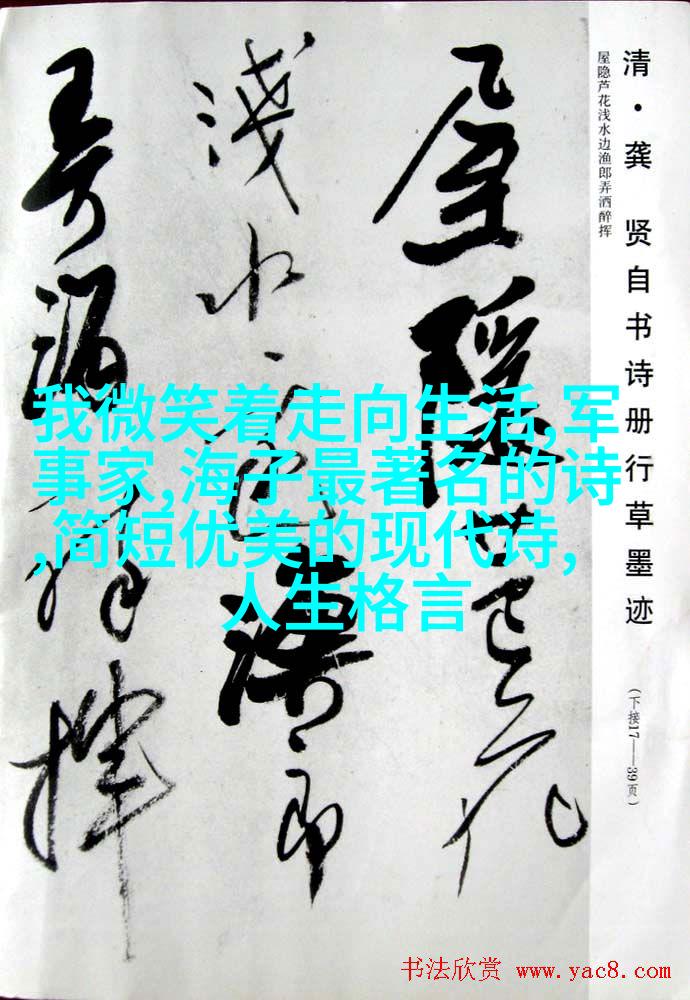 清·龚 贤自书诗册行草墨迹
屋隐芦花浅水边渔郎弄洒醉挥
(下接17——39页)
屋隱芦花
淺水边漁郎
弄酒醉揮
我微笑着走向生活,军
事家,海子最著名的诗
,简短优美的现代诗,
人生格言
书法欣赏 www.yac8.com